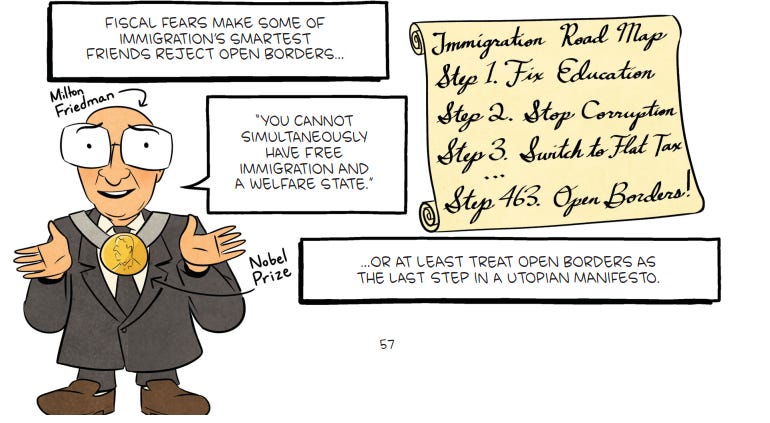 FISCAL FEARS MAKE SOME OF
IMMIGRATION'S SMARTEST
FRIENDS REJECT OPEN BORDERS...
Milton
Friedman
"YOU CANNOT
SIMULTANEOUSLY
HAVE FREE
IMMIGRATION AND
A WELFARE STATE."
Nobel
Prize
Immigration Road Map
Step 1. Fix Education
Step 2. Stop Corruption
Step 3. Switch to Flat Tax
...
Step 463. Open Borders!
...OR AT LEAST TREAT OPEN BORDERS AS
THE LAST STEP IN A UTOPIAN MANIFESTO.
57